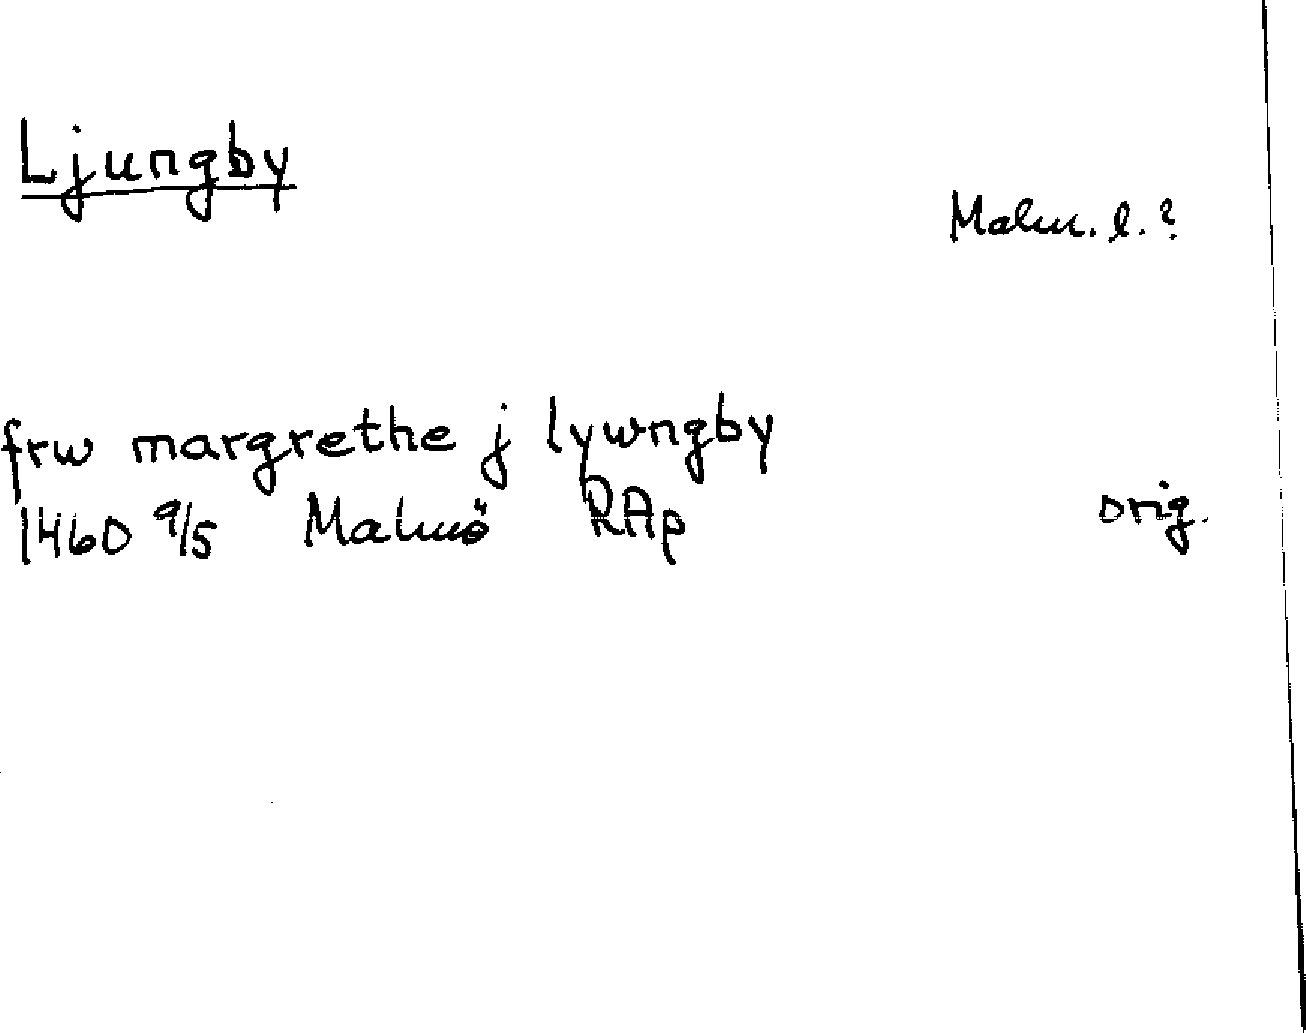 Ljungby
Malm. l. ?
frw margrethe j lywngby
1460 9/5 Malmö RAp orig.